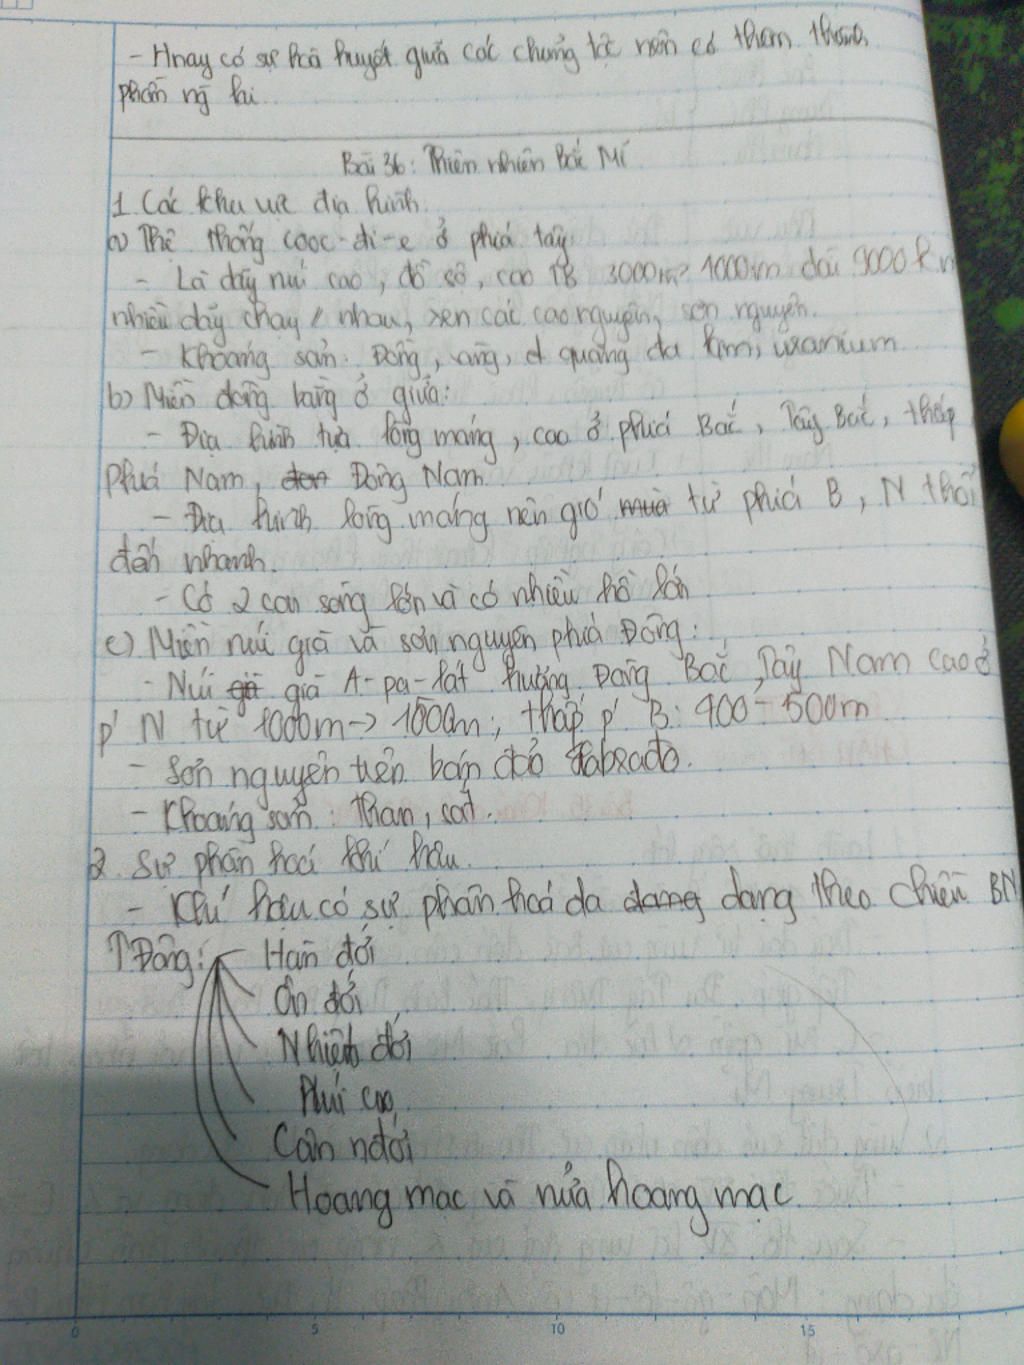 - Hnay có sự hoà huyết giữa các chủng tộc nên có thêm thành
phần ng lai
Bài 36: Thiên nhiên Bắc Mĩ
1. Các khu vực địa hình.
a) Hệ thống cooc-đi-e ở phía tây
- Là dãy núi cao, đồ sộ, cao TB 3000m dài 9000 km
nhiều dãy chạy // nhau, xen các cao nguyên, sơn nguyên.
- Khoáng sản: Đồng, vàng, quặng đa kim, uranium
b) Miền đồng bằng ở giữa:
- Địa hình tựa lòng máng, cao ở phía Bắc, Tây Bắc, thấp
Phía Nam, Đông Nam
- Địa hình lòng máng nên gió từ phía B, N thổi
đến nhanh.
- Có 2 con sông lớn và có nhiều hồ lớn
c) Miền núi già và sơn nguyên phía Đông:
- Núi già A-pa-lát hướng Đông Bắc, Tây Nam cao ở
p' N từ 1000m -> 1500m; thấp p' B: 400 - 500m
- Sơn nguyên trên bán đảo Labrado.
- Khoáng sản: than, sắt.
2. Sự phân hoá khí hậu.
- Khí hậu có sự phân hoá đa dạng theo chiều BN
Đông: Hàn đới
Ôn đới
Nhiệt đới
Núi cao
Cận nđới
Hoang mạc và nửa hoang mạc